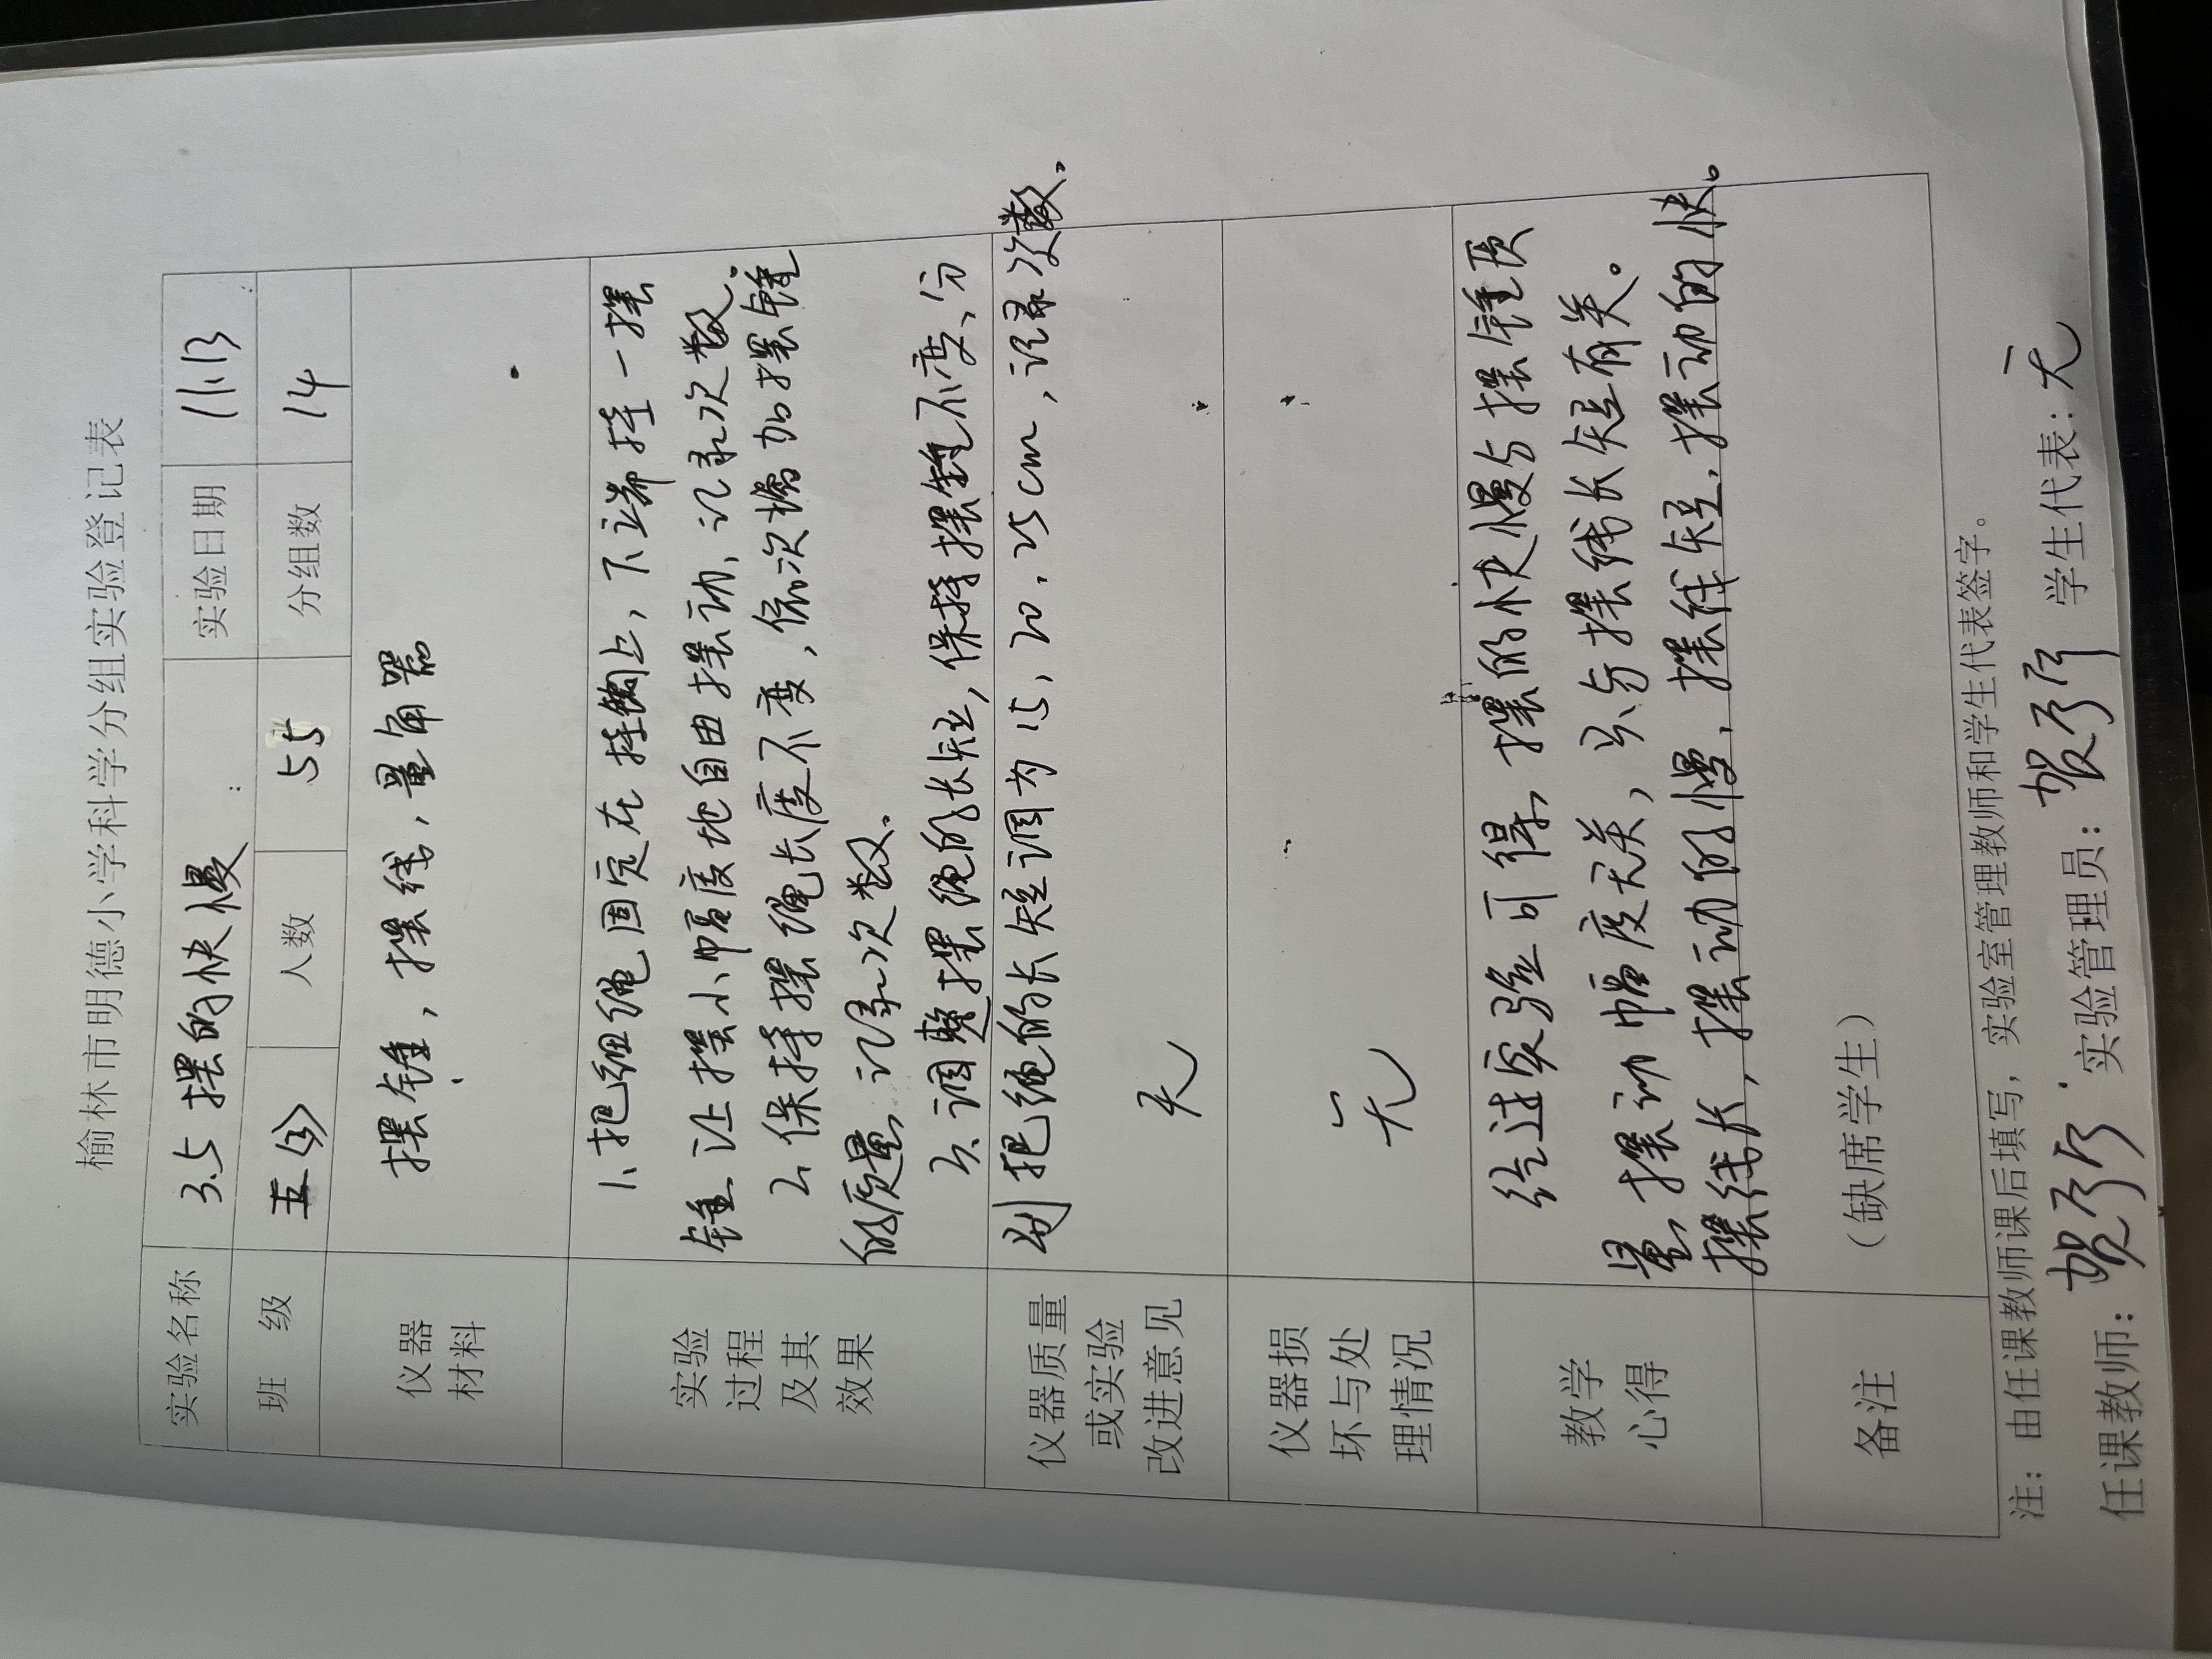 榆林市明德小学科学分组实验登记表
实验名称 3.5 摆的快慢 实验日期 11.13
班 级 五(3) 人数 55 分组数 14
仪器
材料
摆锤，摆线，量角器
实验
过程
及其
效果
1、把细绳固定在挂钩上，下端挂一摆
锤、让摆小幅度地自由摆动、记录次数。
2、保持摆绳长度不变，依次增加摆锤
的质量、记录次数。
3、调整摆绳的长短，保持摆锤不变、分
别把绳的长短调为15，20，25cm，记录次数。
仪器质量
或实验
改进意见
无
仪器损
坏与处
理情况
无
教学
心得
经过实验可得，摆的快慢与摆锤质
量、摆动幅度无关，只与摆线长短有关。
摆线长，摆动的慢，摆线短，摆动的快。
备注
（缺席学生）
注：由任课教师课后填写，实验室管理教师和学生代表签字。
任课教师： 实验管理员： 学生代表：无